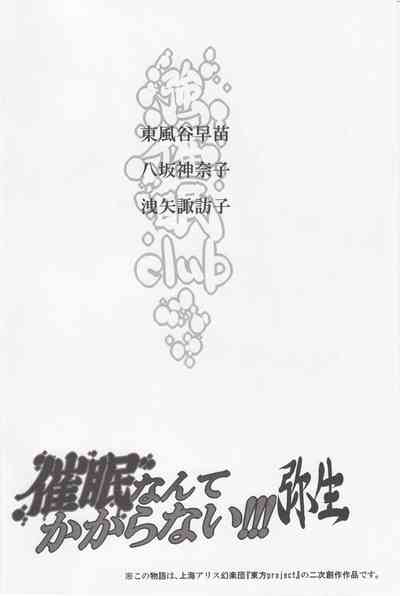 強催眠
club
東風谷早苗
八坂神奈子
洩矢諏訪子
催眠なんて
かからない!!!
弥生
※この物語は、上海アリス幻楽団『東方project』の二次創作作品です。